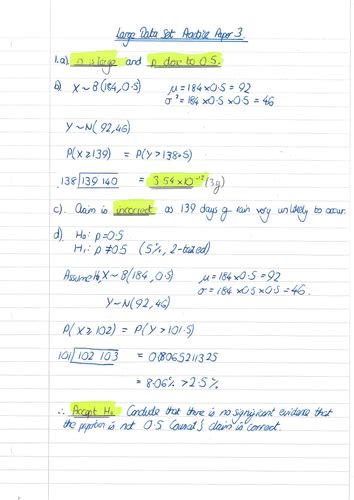 Large Data Set Practice Paper 3
1.a) n is large and p close to 0.5.
b) X~B(184,0.5) μ=184×0.5=92
σ²=184×0.5×0.5=46
Y~N(92,46)
P(X≥139) = P(Y>138.5)
138|139 140 = 3.54×10⁻¹² (3g)
c). Claim is incorrect as 139 days of rain very unlikely to occur.
d) H₀: p=0.5
H₁: p≠0.5 (5%, 2-tailed)
Assume H₀ X~B(184,0.5) μ=184×0.5=92
σ=184×0.5×0.5=46.
Y~N(92,46)
P(X≥102) = P(Y>101.5)
101|102 103 = 0.0806521325
= 8.06% > 2.5%
∴ Accept H₀ Conclude that there is no significant evidence that
the proportion is not 0.5 claim is correct.